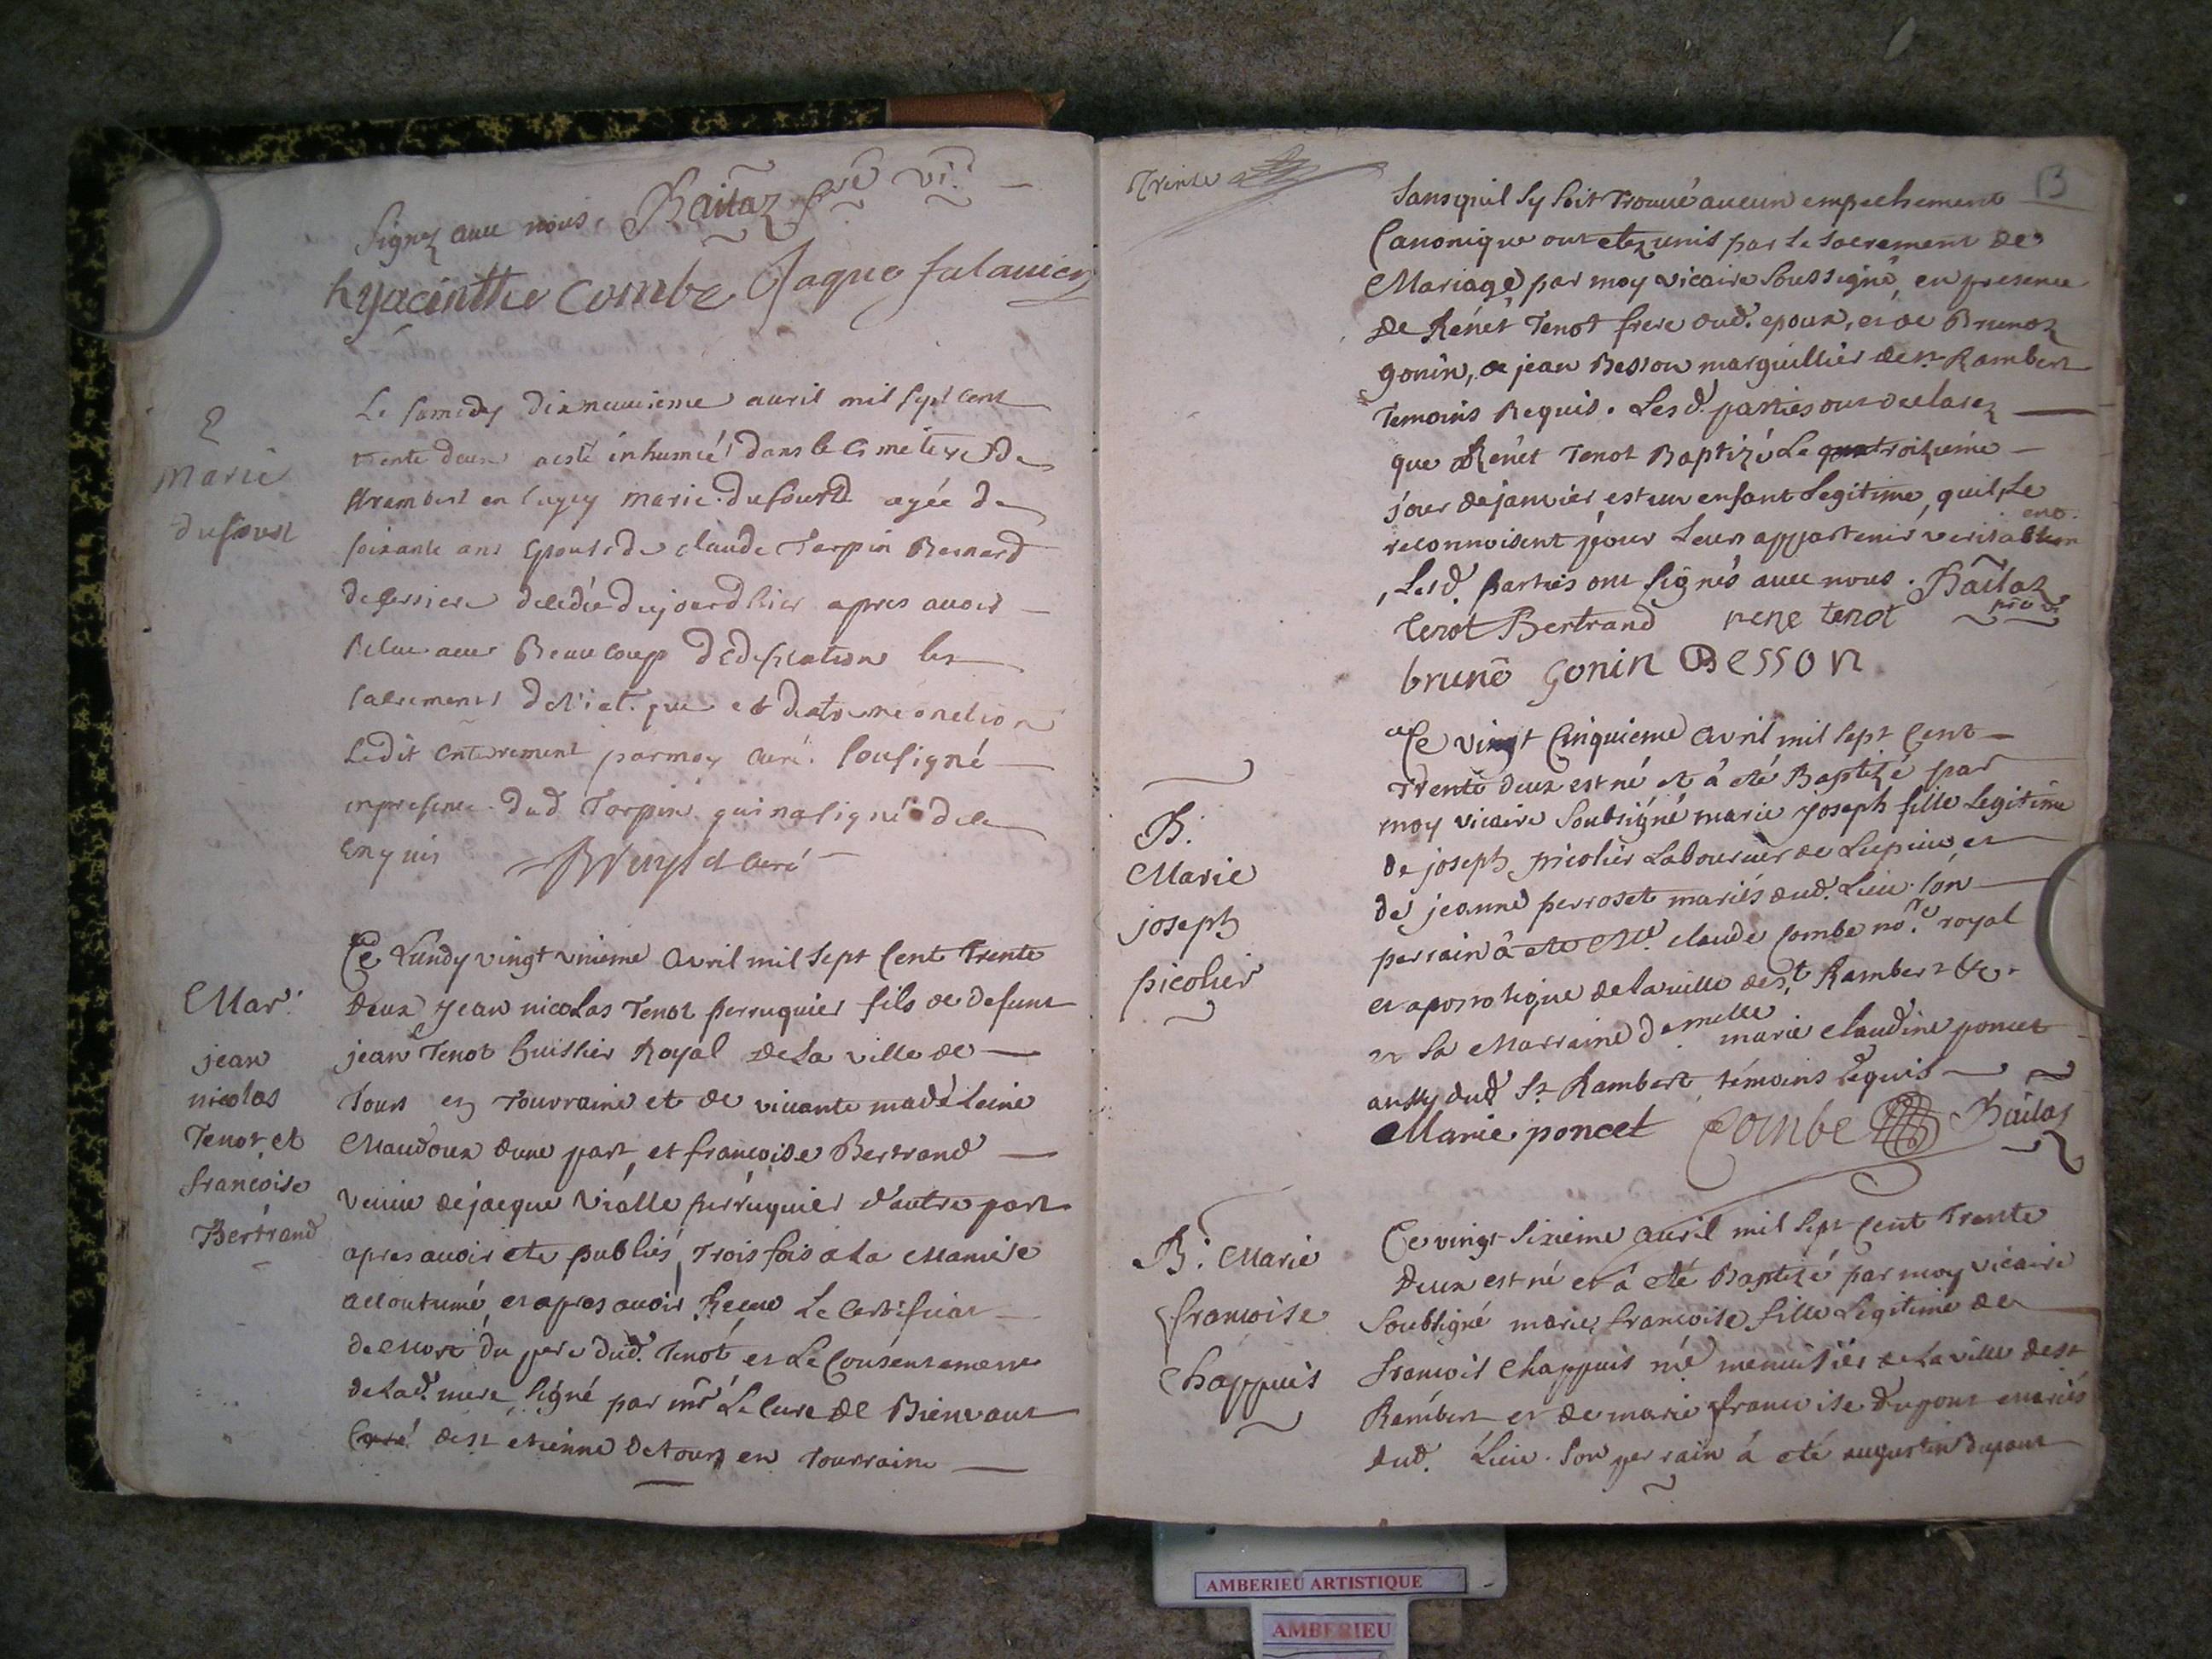 signez avec nous. Bailaz pre vi.
hyacinthe combe Jaque falavier
E
marie
dufourt
Le samedy dixneuvieme avril mil sept cent
trente deux a esté inhumée dans le cimetiere de
st rambert en bugey marie dufourt agée de
soixante ans Epouse de claude Torpin Bernard
decedée du jourdhier apres avoir
Relue avec Beaucoup dedification les
sacrements de viatique et dextremeonction
Ledit enterrement par moy curé sousigné
en presence dud Torpin qui na signé de ce
enquis curé
Mar.
jean
nicolas
Tenot et
francoise
Bertrand
Ce Lundy vingt unieme avril mil sept cent trente
deux jean nicolas Tenot perruquier fils de defunt
jean Tenot huissier Royal de La ville de
Tours en Tourraine et de vivante madeleine
Maudoux dune part, et francoise Bertrand
veuve de jacque Vialle perruquier d'autre part
apres avoir ete publiés Trois fois a La Maniere
accoutumé et apres avoir Receu Le Certificat
de mort du pere dud. Tenot et Le Consentement
de Lad. mere signé par mr Le cure de Bienvaut
Curé de st etienne de tours en Tourraine
Trente
13
sansquil sy soit trouvé aucun empechement
Canonique ont etez unis par Le sacrement de
Mariage par moy vicaire soussigné, en presence
de Rénet Tenot frere dud. epoux, et de Brunoz
gonin, de jean Besson marguillier de st Rambert
Temoins Requis. Lesd. parties ont declarez
que Rénet Tenot Baptizé Le qua troizieme
jour de janvier est un enfant Legitime, quil Le
reconnoisent pour Leur appartenir veritablem
ent.
, Lesd. parties ont signés avec nous. Bailaz
pre vi
tenot Bertrand rene tenot
bruno gonin Besson
B.
Marie
joseph
picolier
Ce vingt Cinquieme avril mil sept cent
trente deux est né et à eté Baptizé par
moy vicaire soubsigné marie joseph fille Legitime
de joseph picolier Laboureur de Lupieu, et
de jeanne perroset mariés dud. Lieu. son
parrain à ete Me. claude Combe nore. royal
et apostolique de la ville de st Rambert &c.
et sa Marraine demelle marie claudine poncet
aussy dud st Rambert témoins Requis
Marie poncet Combe Bailaz
B. Marie
francoise
Chappuis
Ce vingt sixieme avril mil sept cent trente
deux est né et à eté Baptizé par moy vicaire
soubsigné marie francoise fille Legitime de
francois Chappuis me menuisier de La ville de st
Rambert et de marie francoise dupont mariés
dud. Lieu. son parrain à eté augustin dupont
AMBERIEU ARTISTIQUE
AMBERIEU